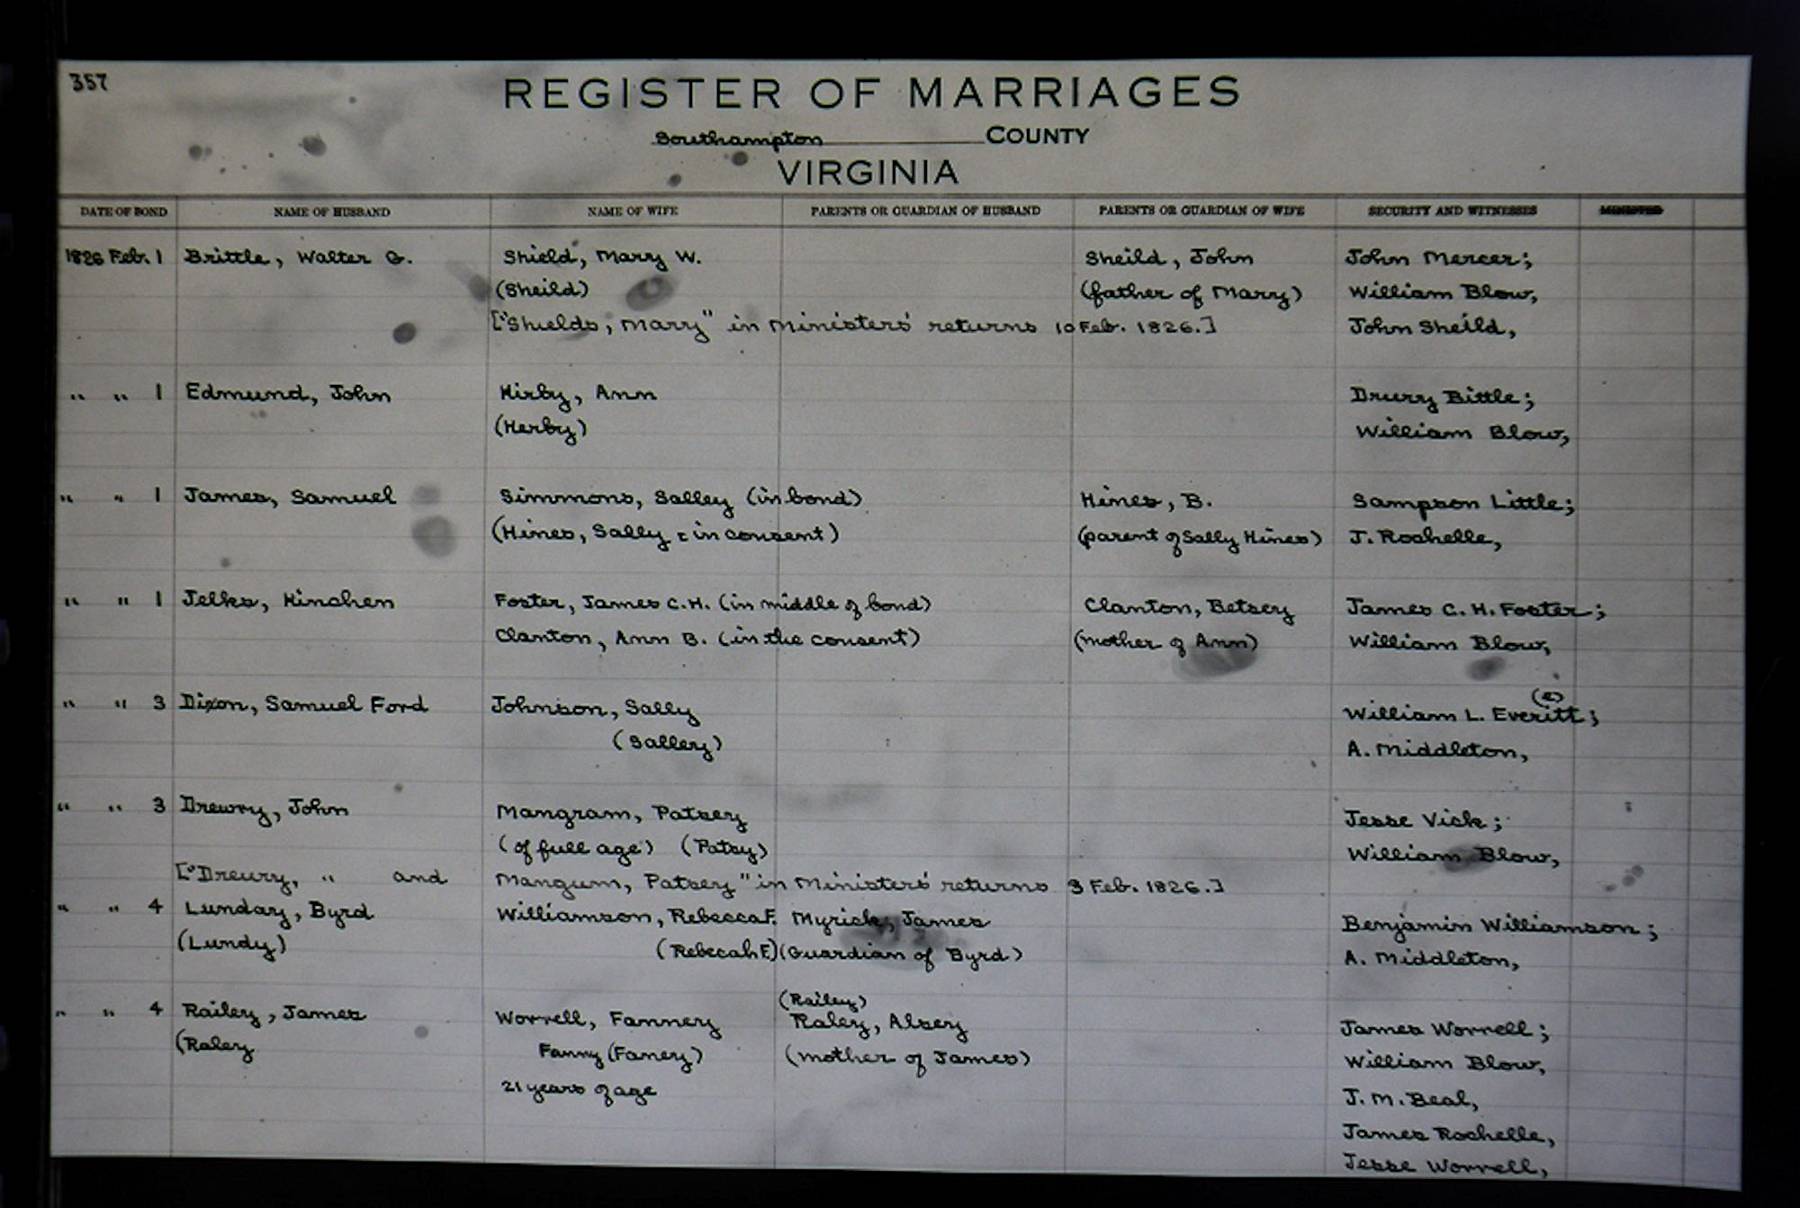 357
REGISTER OF MARRIAGES
Southampton COUNTY
VIRGINIA
DATE OF BOND NAME OF HUSBAND NAME OF WIFE PARENTS OR GUARDIAN OF HUSBAND PARENTS OR GUARDIAN OF WIFE SECURITY AND WITNESSES MINISTER
1826 Feb. 1 Brittle, Walter G. Shield, Mary W. Sheild, John John Mercer;
(Sheild) (father of Mary) William Blow,
["Shields, Mary" in Ministers' returns 10 Feb. 1826.] John Sheild,
" " 1 Edmund, John Kirby, Ann Drury Bittle;
(Kerby) William Blow,
" " 1 James, Samuel Simmons, Salley (in bond) Hines, B. Sampson Little;
(Hines, Sally : in consent) (parent of Sally Hines) J. Rochelle,
" " 1 Jelks, Kinchen Foster, James C. H. (in middle of bond) Clanton, Betsey James C. H. Foster;
Clanton, Ann B. (in the consent) (mother of Ann) William Blow,
" " 3 Dixon, Samuel Ford Johnson, Sally William L. Everitt;
(Salley) A. Middleton,
" " 3 Drewry, John Mangram, Patsey Jesse Vick;
(of full age) (Patsy) William Blow,
["Drewry, " and Mangum, Patsey" in Ministers' returns 3 Feb. 1826.]
" " 4 Lunday, Byrd Williamson, Rebecca F. Myrick, James Benjamin Williamson;
(Lundy) (Rebecah F) (Guardian of Byrd) A. Middleton,
(Railey)
" " 4 Railey, James Worrell, Fannery Raley, Alsey James Worrell;
(Raley Fanny (Faney) (mother of James) William Blow,
21 years of age J. M. Beal,
James Rochelle,
Jesse Worrell,